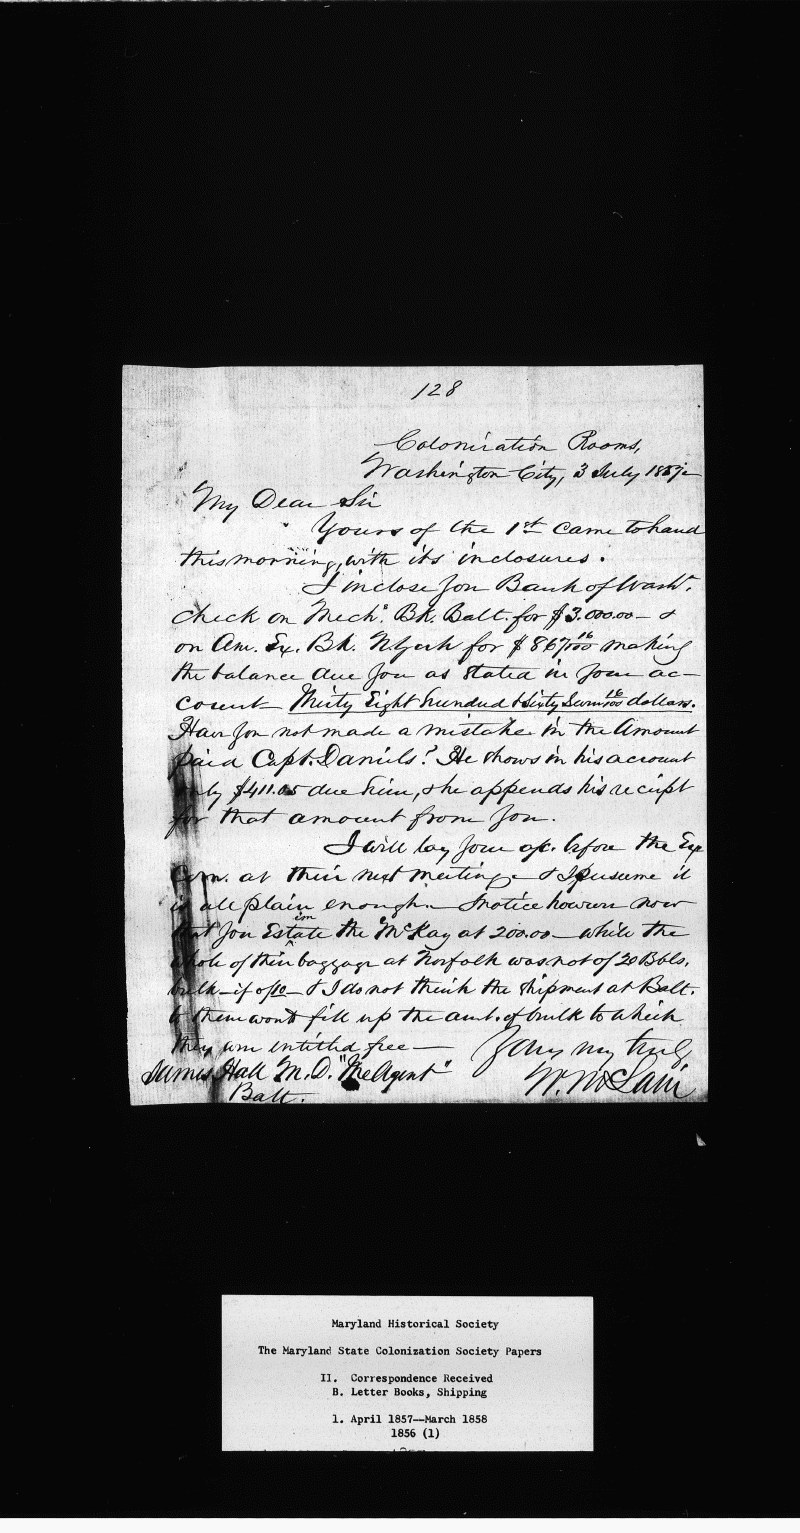 128
Colonization Rooms,
Washington City, 3 July 1857
My Dear Sir
Yours of the 1st came to hand
this morning, with its inclosures.
I inclose you Bank of Washn.
check on Mechs. Bk. Balt. for $3.000.00 — &
on Am. Ex. Bk. N.York for $867 16/100 making
the balance due you as stated in your ac-
count Thirty Eight hundred & sixty seven 16/100 dollars.
Have you not made a mistake in the amount
paid Capt. Daniels? He shows in his account
only $411.05 due him, & he appends his receipt
for that amount from you.
I will lay your a/c. before the Ex
Com. at their next meeting & I presume it
is all plain enough. I notice however now
that you Estimate the McKay at 200.00 — while the
whole of their baggage at Norfolk was not of 20 Bbls.
bulk — if of 10 — & I do not think the shipment at Balt.
to them would fill up the amt. of bulk to which
they were entitled free —
Yours very truly
James Hall M.D. "The Agent"
W. McLain
Balt.
Maryland Historical Society
The Maryland State Colonization Society Papers
II. Correspondence Received
B. Letter Books, Shipping
1. April 1857--March 1858
1856 (1)